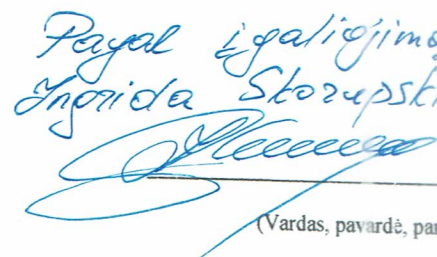 Pagal įgaliojimą
Ingrida Skorupski
(Vardas, pavardė, par